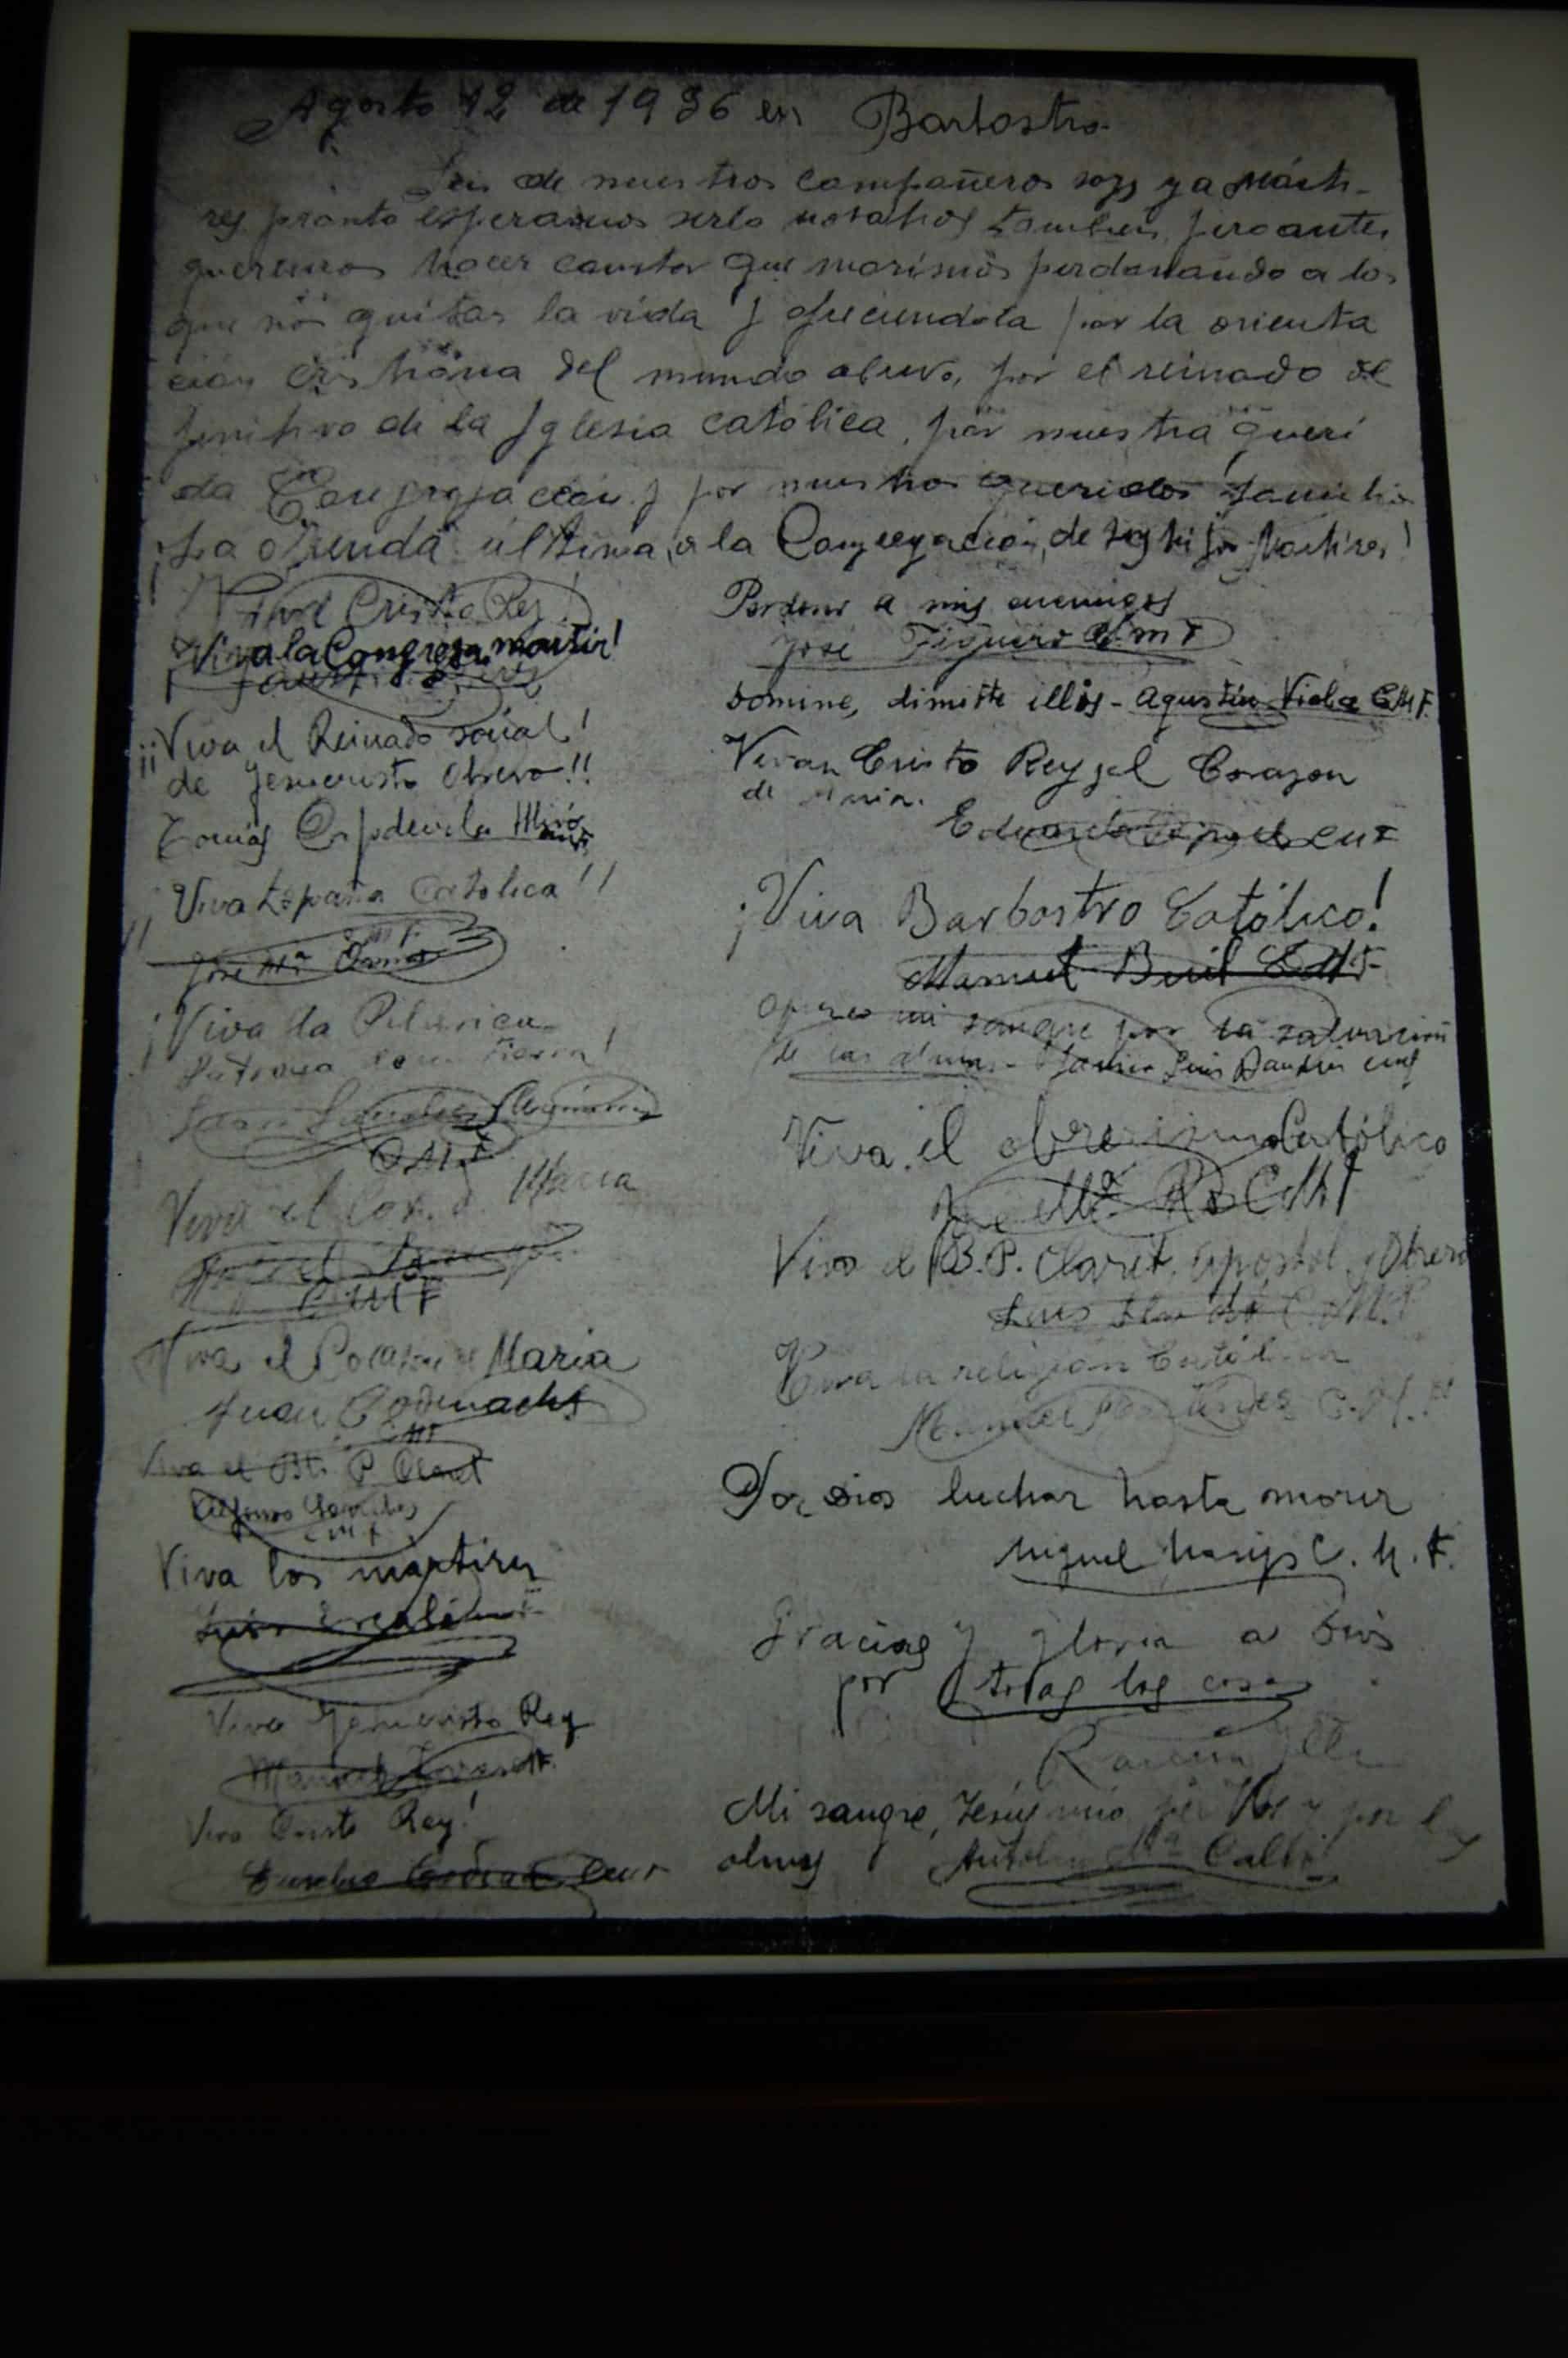 Agosto 12 de 1936 en Barbastro.
Seis de nuestros compañeros sons ya Márti-
res pronto esperamos serlo nosotros tambien, pero antes
queremos hacer constar que morimos perdonando a los
que nos quitan la vida y ofreciendola por la orienta
cion cristiana del mundo obrero, por el reinado de
finitivo de la Iglesia católica, por nuestra queri
da Congregación y por nuestras queridas familias
¡La ofrenda última, a la Congregación, de sus hijos Mártires!
¡Viva Cristo Rey!
Viva la Congrega. martir!
¡¡Viva el Reinado social!
de Jesucristo Obrero!!
Tomás Capdevila Miró CMF
¡¡Viva España Católica!!
José Mª CMF.
¡Viva la Pilarica
Patrona de mi tierra!
Juan Sanchez Munárriz
CMF
Viva el Cor. de Maria
CMF
Viva el Corazon de Maria
Juan Codinachs
CMF
Viva el Bto. P. Claret
Alfonso
CMF
Viva los martires
Luis
Viva Jesucristo Rey
Manuel
Viva Cristo Rey!
Eusebio Codina CMF
Perdono a mis enemigos
José Figuero C.M.F
Domine, dimitte illis - Agustín Viela C.M.F.
Vivan Cristo Rey y el Corazon
de Maria.
Eduardo Ripoll CMF
¡Viva Barbastro Católico!
Manuel Buil C.M.F.
Ofrezco mi sangre por la salvación
de las almas - Javier Luis Bandrés CMF
Viva el obrerismo Católico
José Mª Ros CMF
Viva el B.P. Claret, apostol y Obrero
Luis Lladó C.M.F.
Viva la religión Católica
Manuel Martínez C.M.F.
Por Dios luchar hasta morir
Miguel Masip C.M.F.
Gracias y gloria a Dios
por todas las cosas
Ramón Illa
Mi sangre, Jesús mío, por Vos y por las
almas Antolín Mª Calvo